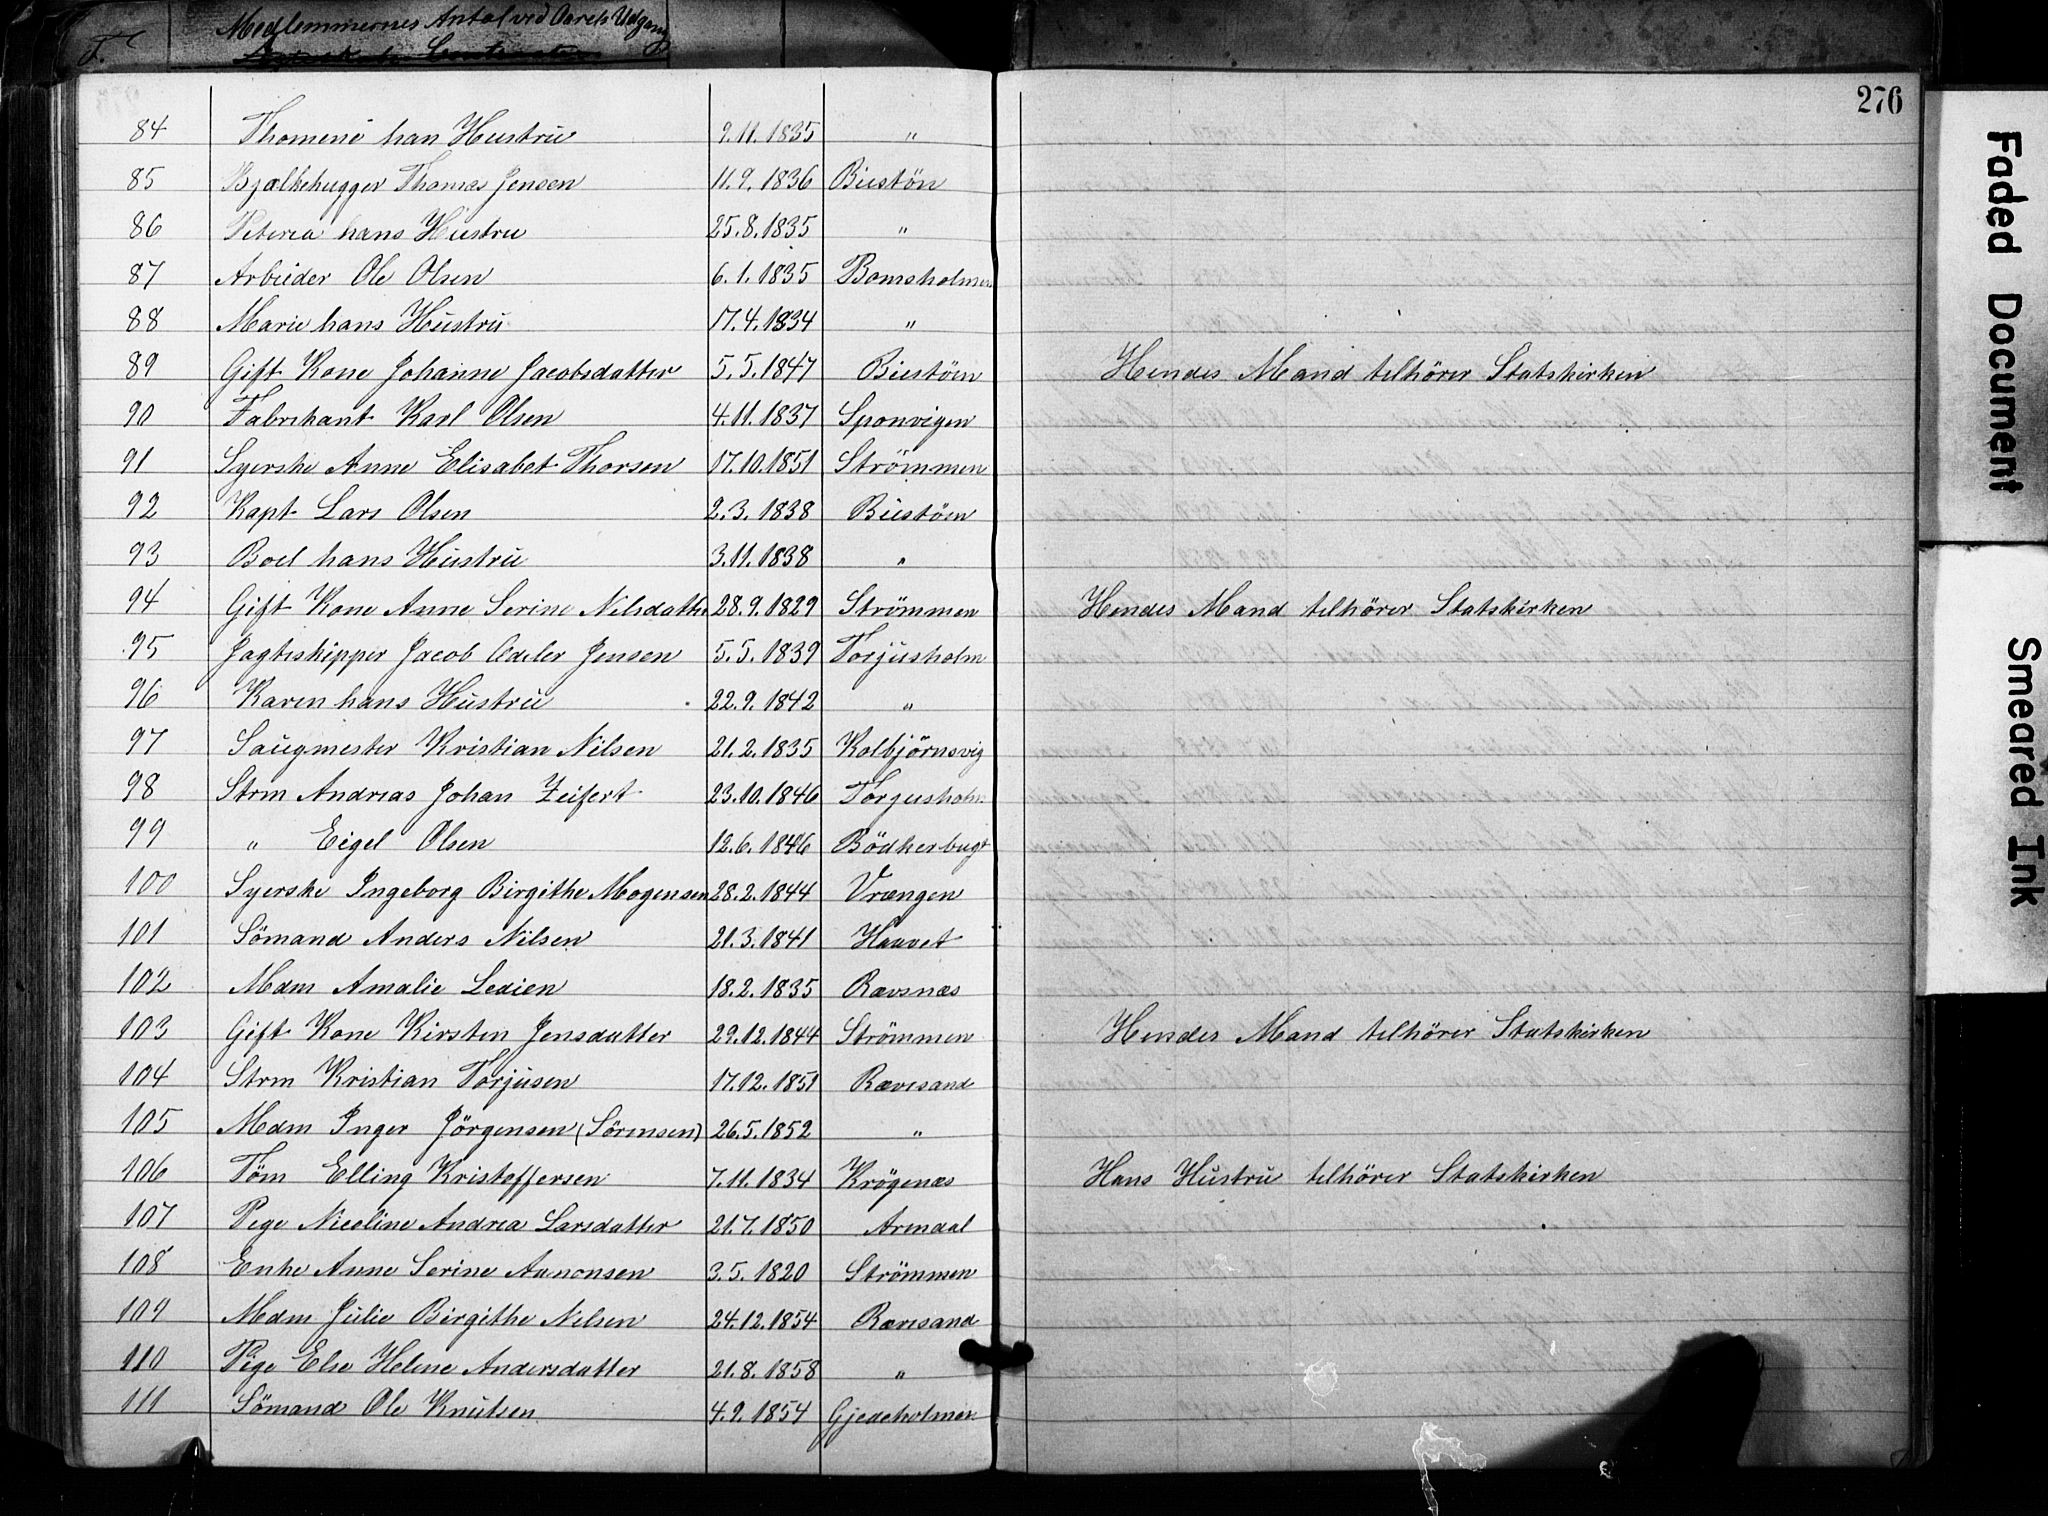 F. Medlemmernes Antal ved Aarets Udgang
276
84 Thomene han Hustru 9.11.1835 "
85 Bjælkehugger Thomas Jensen 11.9.1836 Biestön
86 Peterea hans Hustru 25.8.1835 "
87 Arbeider Ole Olsen 6.1.1835 Bomsholmen
88 Marie hans Hustru 17.4.1834 "
89 Gift Kone Johanne Jacobsdatter 5.5.1847 Biestöen Hendes Mand tilhörer Statskirken
90 Fabrikant Karl Olsen 4.11.1837 Sponvigen
91 Syerske Anne Elisabet Thorsen 17.10.1851 Strömmen
92 Kapt Lars Olsen 2.3.1838 Biestöen
93 Boel hans Hustru 3.11.1838 "
94 Gift Kone Anne Serine Nilsdatter 28.9.1829 Strömmen Hendes Mand tilhörer Statskirken
95 Jagtskipper Jacob Adler Jensen 5.5.1839 Torjusholm
96 Karen hans Hustru 22.9.1842 "
97 Saugmester Kristian Nilsen 21.2.1835 Kolbjörnsvig
98 Strm Andreas Johan Zeifert 23.10.1846 Torjusholm
99 " Eigel Olsen 12.6.1846 Bödkerbugt
100 Syerske Ingeborg Birgithe Mogensen 28.2.1844 Vrængen
101 Sömand Anders Nilsen 21.3.1841 Haavet
102 Mdm Amalie Ledien 18.2.1835 Rævsnæs
103 Gift Kone Kirsten Jensdatter 29.12.1844 Strömmen Hendes Mand tilhörer Statskirken
104 Strm Kristian Torjusen 17.12.1851 Rævesand
105 Mdm Inger Jörgensen (Sörensen) 26.5.1852 "
106 Töm Elling Kristeffersen 7.11.1834 Krögenæs Hans Hustru tilhörer Statskirken
107 Pige Nicoline Andrea Larsdatter 21.7.1850 Arendal
108 Enke Anne Serine Aanonsen 3.5.1820 Strömmen
109 Mdm Julie Birgithe Nilsen 24.12.1854 Rævesand
110 Pige Else Helene Andersdatter 21.8.1858 "
111 Sömand Ole Knutsen 4.9.1854 Gjedeholmen
Faded Document
Smeared Ink